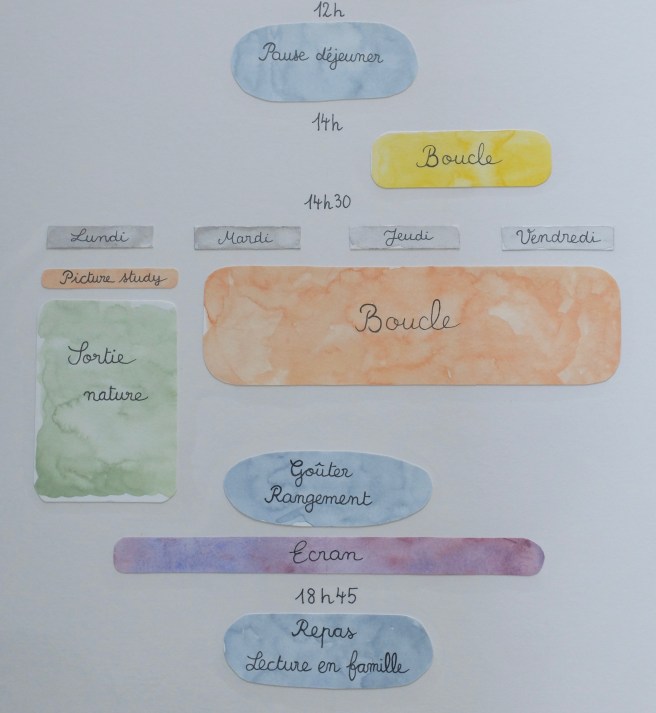 12h
Pause déjeuner
14h
Boucle
14h30
Lundi Mardi Jeudi Vendredi
Picture study
Boucle
Sortie
nature
Goûter
Rangement
Ecran
18h45
Repas
Lecture en famille